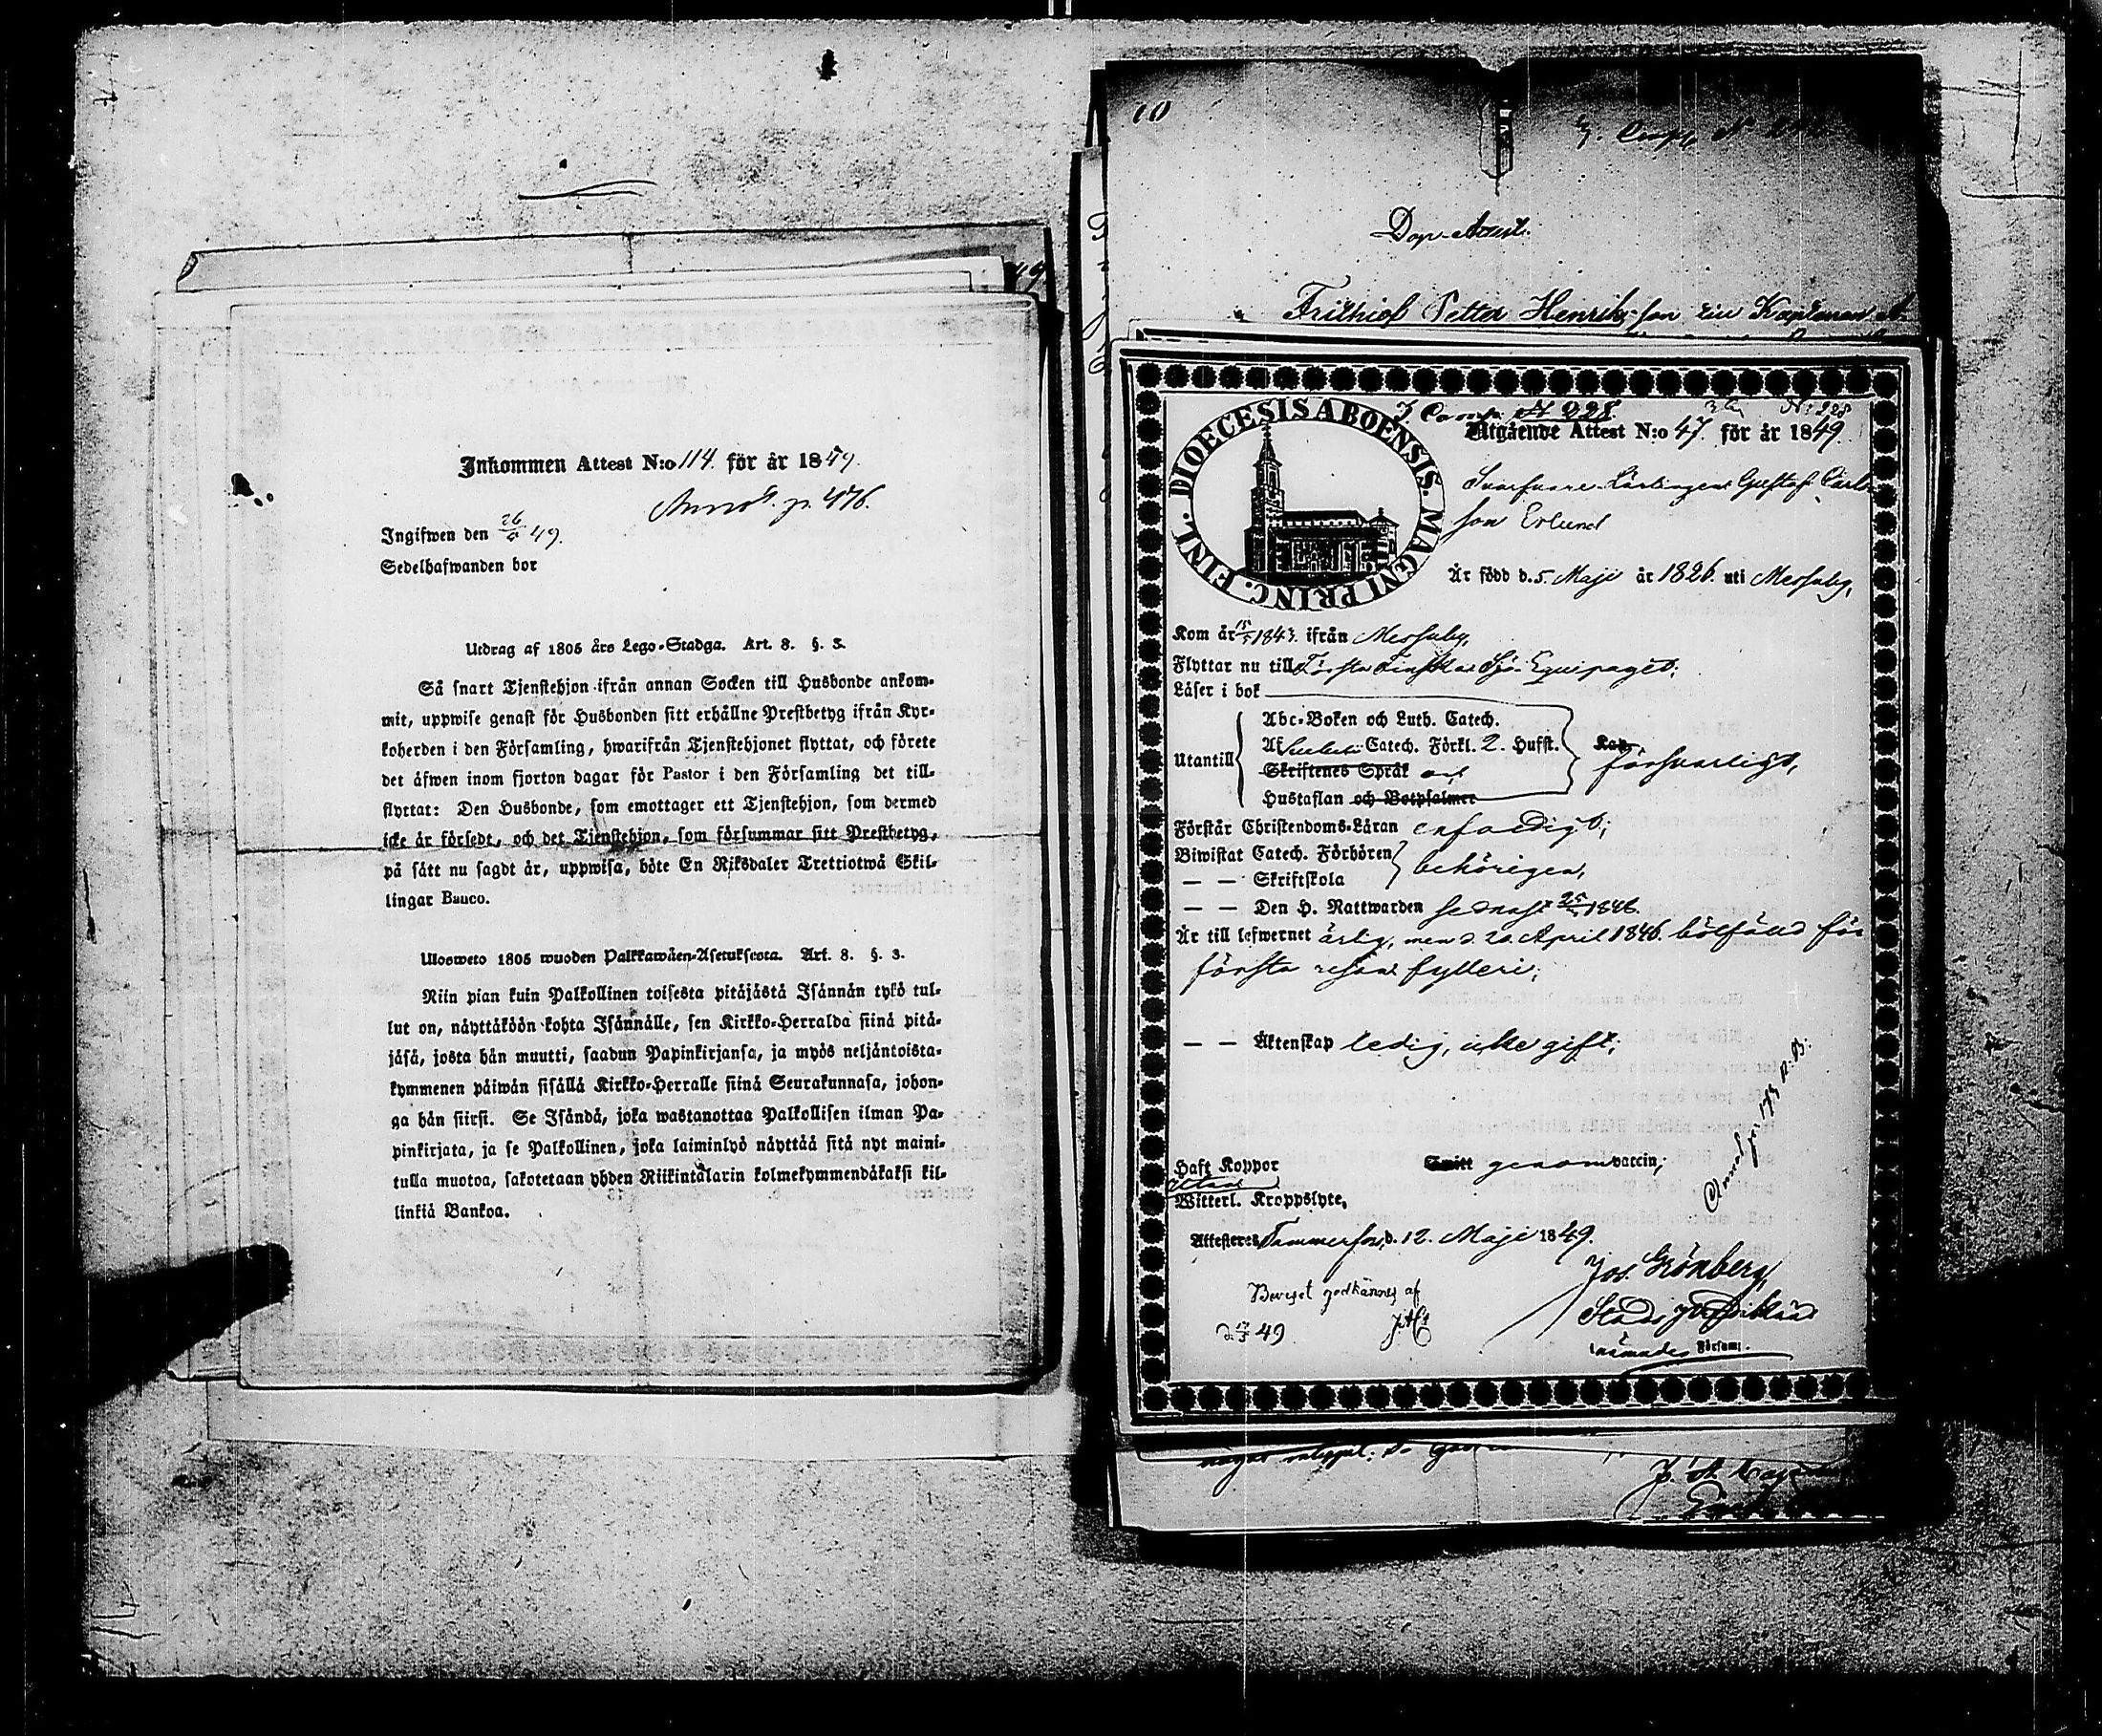 Inkommen Attest N:o 114. för år 1849.
Annot. p. 476.
Ingifwen den 26/5 49.
Sedelhafwanden bor
Utdrag af 1805 års Lego-Stadga. Art. 8. §. 3.
Så snart Tjenstehjon ifrån annan Socken till Husbonde ankom-
mit, uppwise genast för Husbonden sitt erhållne Prestbetyg ifrån Kyr-
koherden i den Församling, hwarifrån Tjenstehjonet flyttat, och förete
det äfwen inom fjorton dagar för Pastor i den Församling det till-
flyttat: Den Husbonde, som emottager ett Tjenstehjon, som dermed
icke är försedt, och det Tjenstehjon, som försummar sitt Prestbetyg,
på sätt nu sagdt är, uppwisa, böte En Riksdaler Trettiotwå Skil-
lingar Banco.
Ulosweto 1805 wuoden Palkkawäen-Asetuksesta. Art. 8. §. 3.
Niin pian kuin Palkollinen toisesta pitäjästä Isännän tykö tul-
lut on, näyttäköön kohta Isännälle, sen Kirkko-Herralda siinä pitä-
jäsä, josta hän muutti, saadun Papinkirjansa, ja myös neljäntoista-
kymmenen päiwän sisällä Kirkko-Herralle siinä Seurakunnasa, johon-
ga hän siirsi. Se Isändä, joka wastanottaa Palkollisen ilman Pa-
pinkirjata, ja se Palkollinen, joka laiminlyö näyttää sitä nyt maini-
tulla muotoa, sakotetaan yhden Riikintalarin kolmekymmendäkaksi kil-
linkiä Bankoa.
10
Dop-Attest.
Frithiof Petter Henriks-son
DIOECESIS ABOENSIS. MAGNI PRINC. FINL.
3 Comp. N 228
N: 228
Utgående Attest N:o 47. för år 1849.
Svarfvare-Lärlingen Gustaf Carls-
son Erlund
Är född d. 5. Maji år 1826. uti Messuby,
Kom år 1843. ifrån Messuby,
Flyttar nu till Första Finska Sjö-Equipaget;
Läser i bok
Utantill
Abc-Boken och Luth. Catech.
Af Catech. Förkl. 2. Hufst.
Skriftenes Språk och
Hustaflan och Botpsalmer
försvarligt,
Förstår Christendoms-Läran enfaldigt;
Biwistat Catech. Förhören
— — Skriftskola
behörigen,
— — Den H. Nattwarden sednast 1846.
Är till lefwernet ärlig, men d. 20. April 1846. bötfäld för
första resan fylleri;
— — Äktenskap ledig, icke gift;
Annot. p. 173
Haft Koppor
Smitt genom vaccin;
Witterl. Kroppslyte,
utan
Attesteres Tammerfors, d. 12. Maji 1849.
Jos. Grönberg,
Beviset godkännes af
49
nämndes Församl.